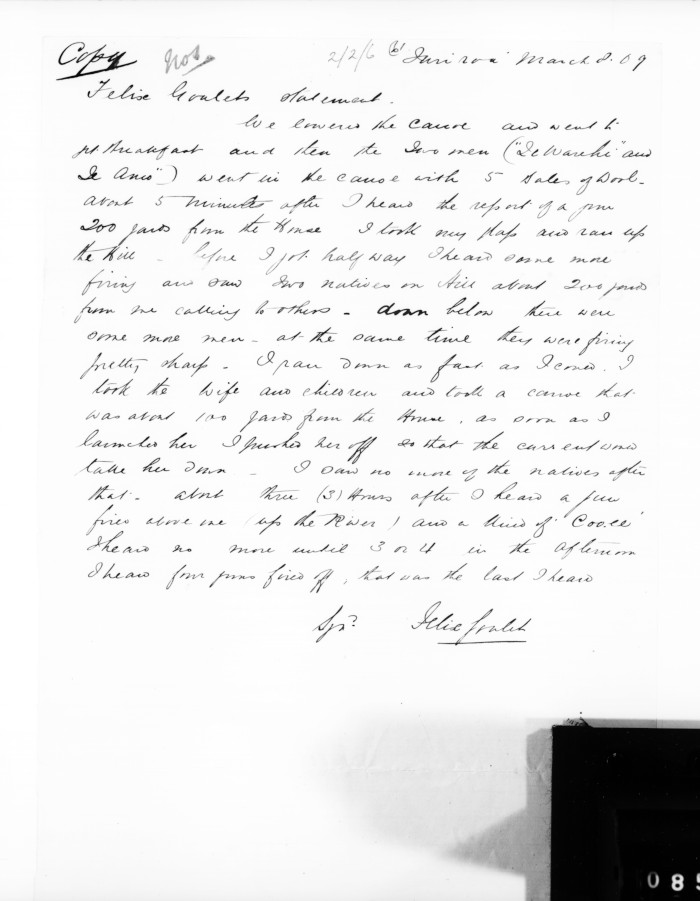 Copy Not. 2/2/6 (b) Turiroa March 8. 09
Felix Goulets statement.
We lowered the canoe and went to
get Breakfast and then the Two men ("Te Warihi" and
"Te Anio") went in the canoe with 5 Bales of Wool -
about 5 minutes after I heard the report of a gun
200 yards from the House I took my and ran up
the Hill - before I got half way I heard some more
firing and saw Two natives on Hill about 200 yards
from me calling to others - down below there were
some more men - at the same time they were firing
pretty sharp - I ran down as fast as I could. I
took the wife and children and took a canoe that
was about 100 yards from the House, as soon as I
launched her I pushed her off so that the current would
take her down - I saw no more of the natives after
that - about three (3) Hours after I heard a gun
fired above me (up the River) and a kind of 'Cooee'
I heard no more until 3 or 4 in the afternoon
I heard four guns fired off, that was the last I heard
Sgn? Felix Goulet
085